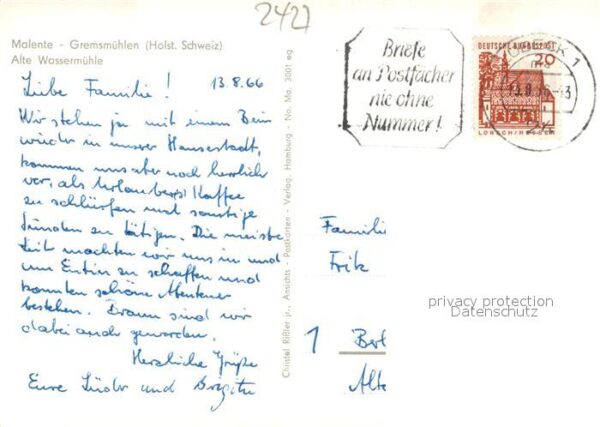 2427
Malente - Gremsmühlen (Holst. Schweiz)
Alte Wassermühle
Liebe Familie! 13.8.66
Wir stehen ja mit einem Bein
wieder in unserer Hansestadt,
kommen uns aber noch herrlich
vor, als Urlauber Kaffee
zu schlürfen und sonstige
Sünden zu tätigen. Die meiste
Zeit machten wir uns in und
um Eutin zu schaffen und
konnten schöne Abenteuer
bestehen. Braun sind wir
dabei auch geworden.
Herzliche Grüße
Eure und Brigitte
Christel Rißler jr., Ansichts - Postkarten - Verlag, Hamburg · No. Ma. 3001 eg
Briefe
an Postfächer
nie ohne
Nummer!
LÜBECK 1
DEUTSCHE BUNDESPOST
20
LORSCH/HESSEN
Famili
Frik
1 Berl
Alte
privacy protection
Datenschutz